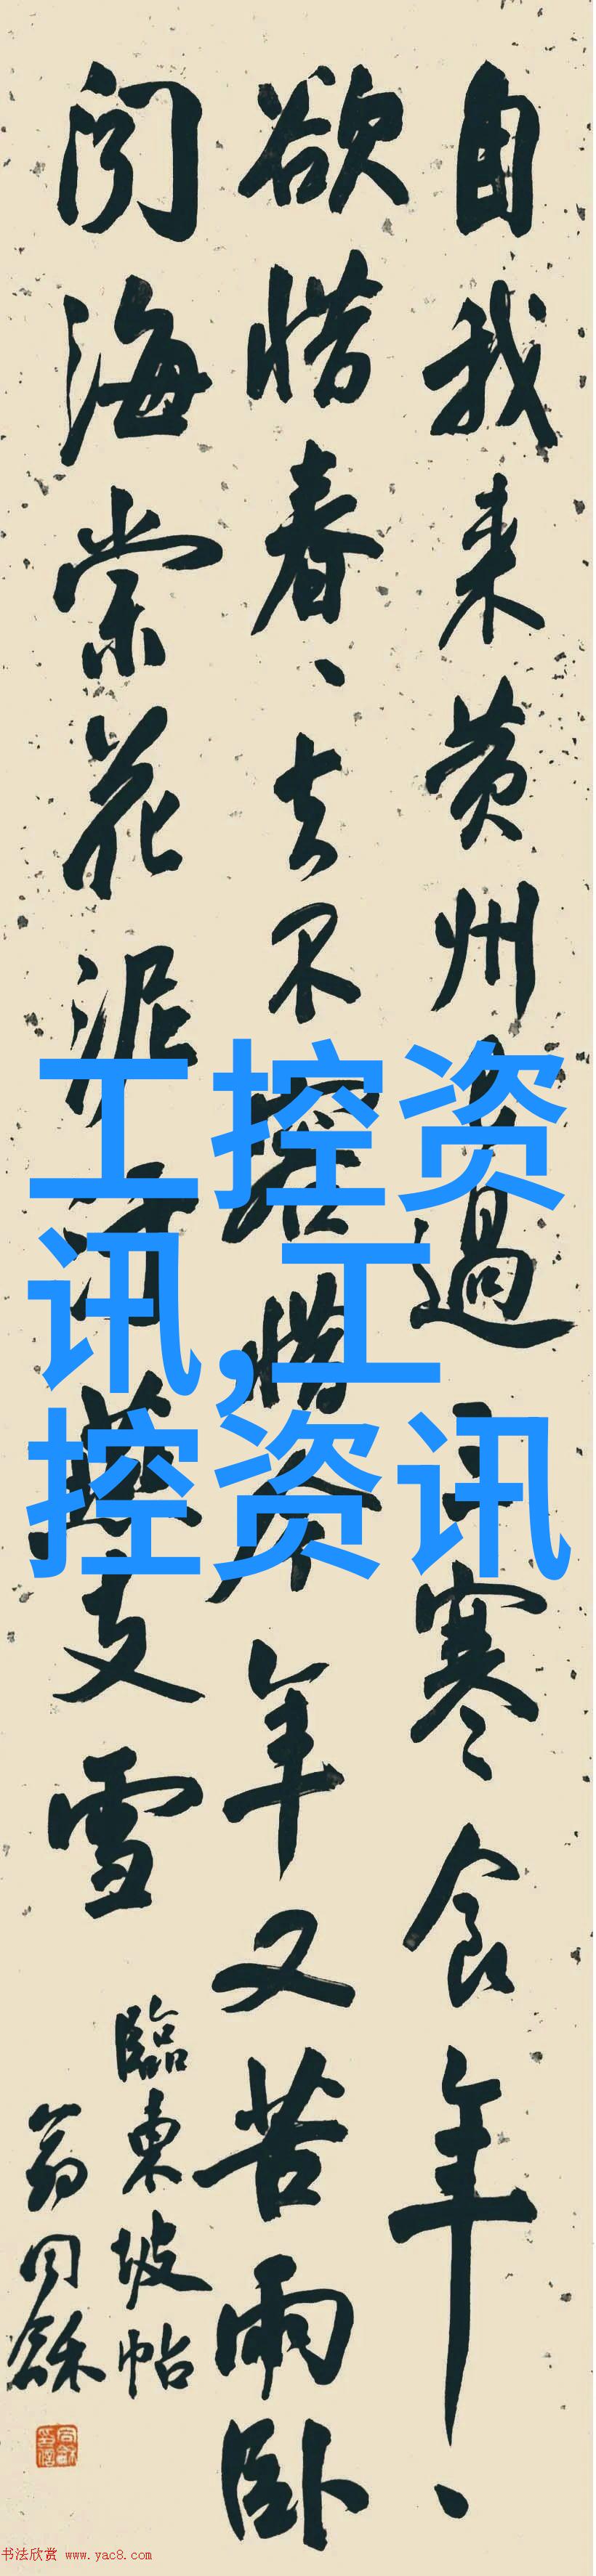 自我来黄州已過三寒食年、
欲惜春、去不容惜今年又苦雨卧
闻海棠花泥污燕支雪
臨東坡帖
翁同龢
工控资
讯,工
控资讯
书法欣赏 www.yac8.com